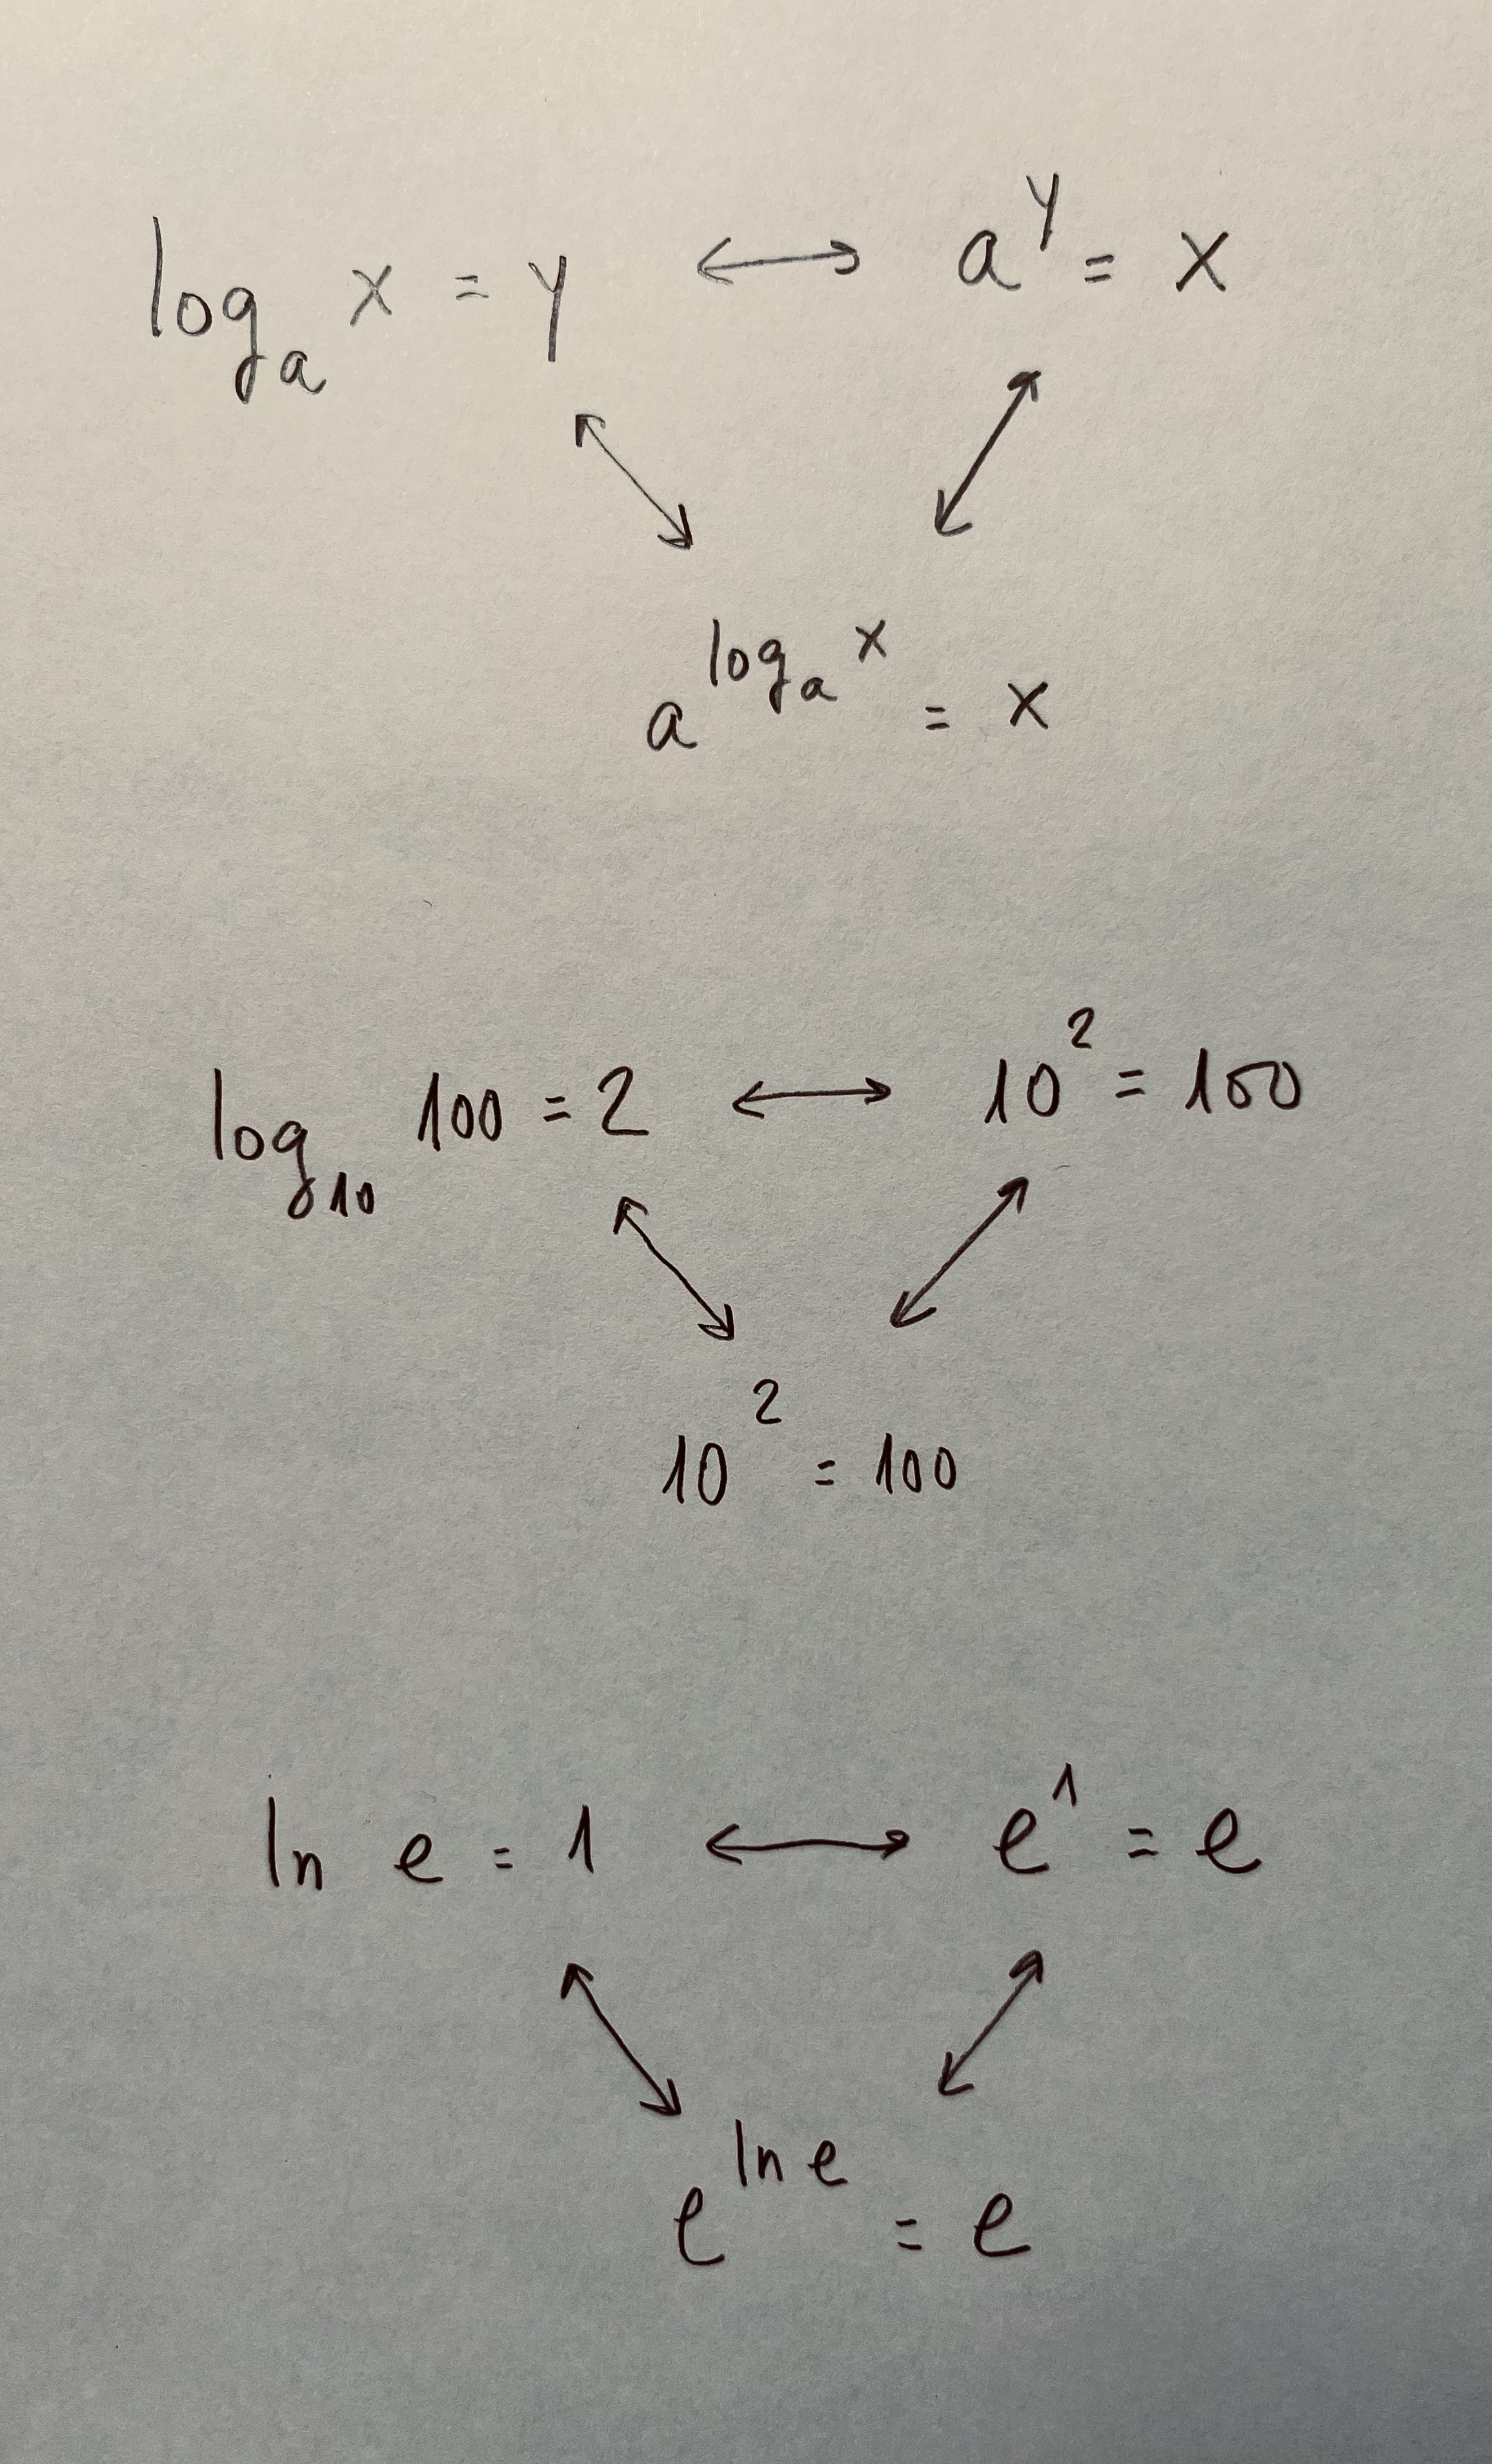 logₐ x = y ⟷ a^y = x
a^(logₐ x) = x
log₁₀ 100 = 2 ⟷ 10² = 100
10² = 100
ln e = 1 ⟷ e¹ = e
e^(ln e) = e